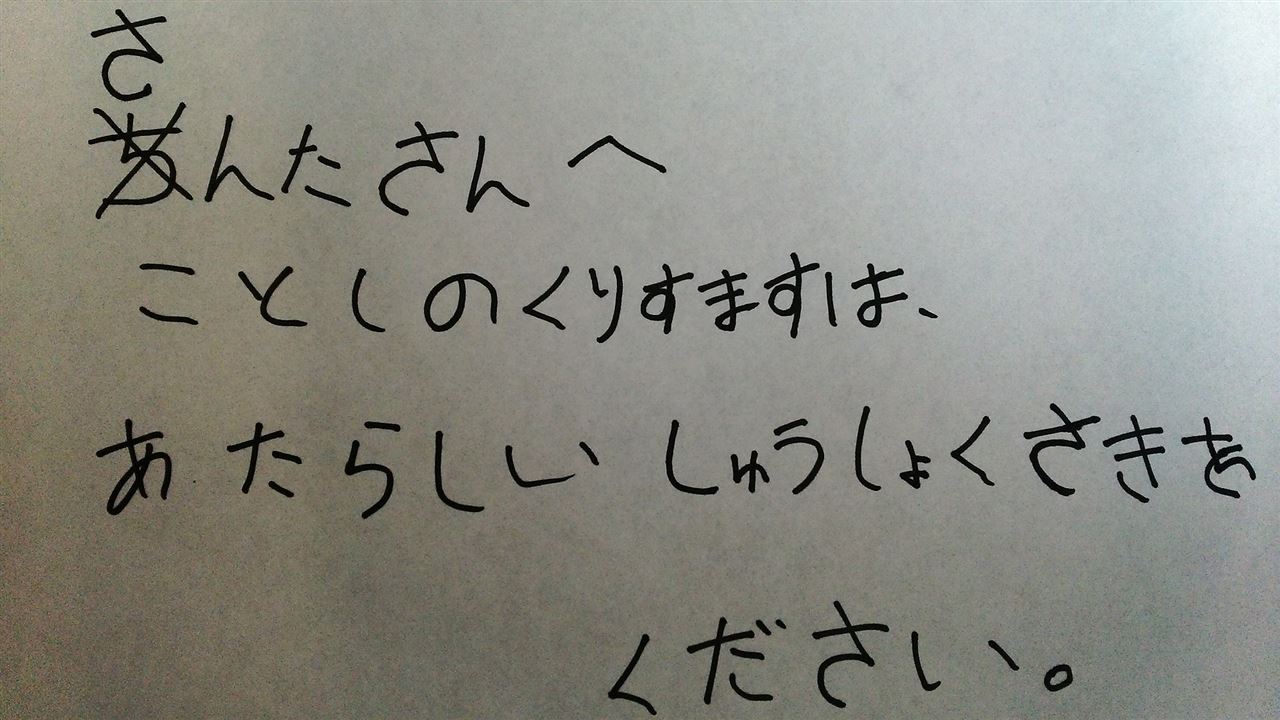 さんたさんへ
ことしのくりすますは、
あたらしい しゅうしょくさきを
ください。